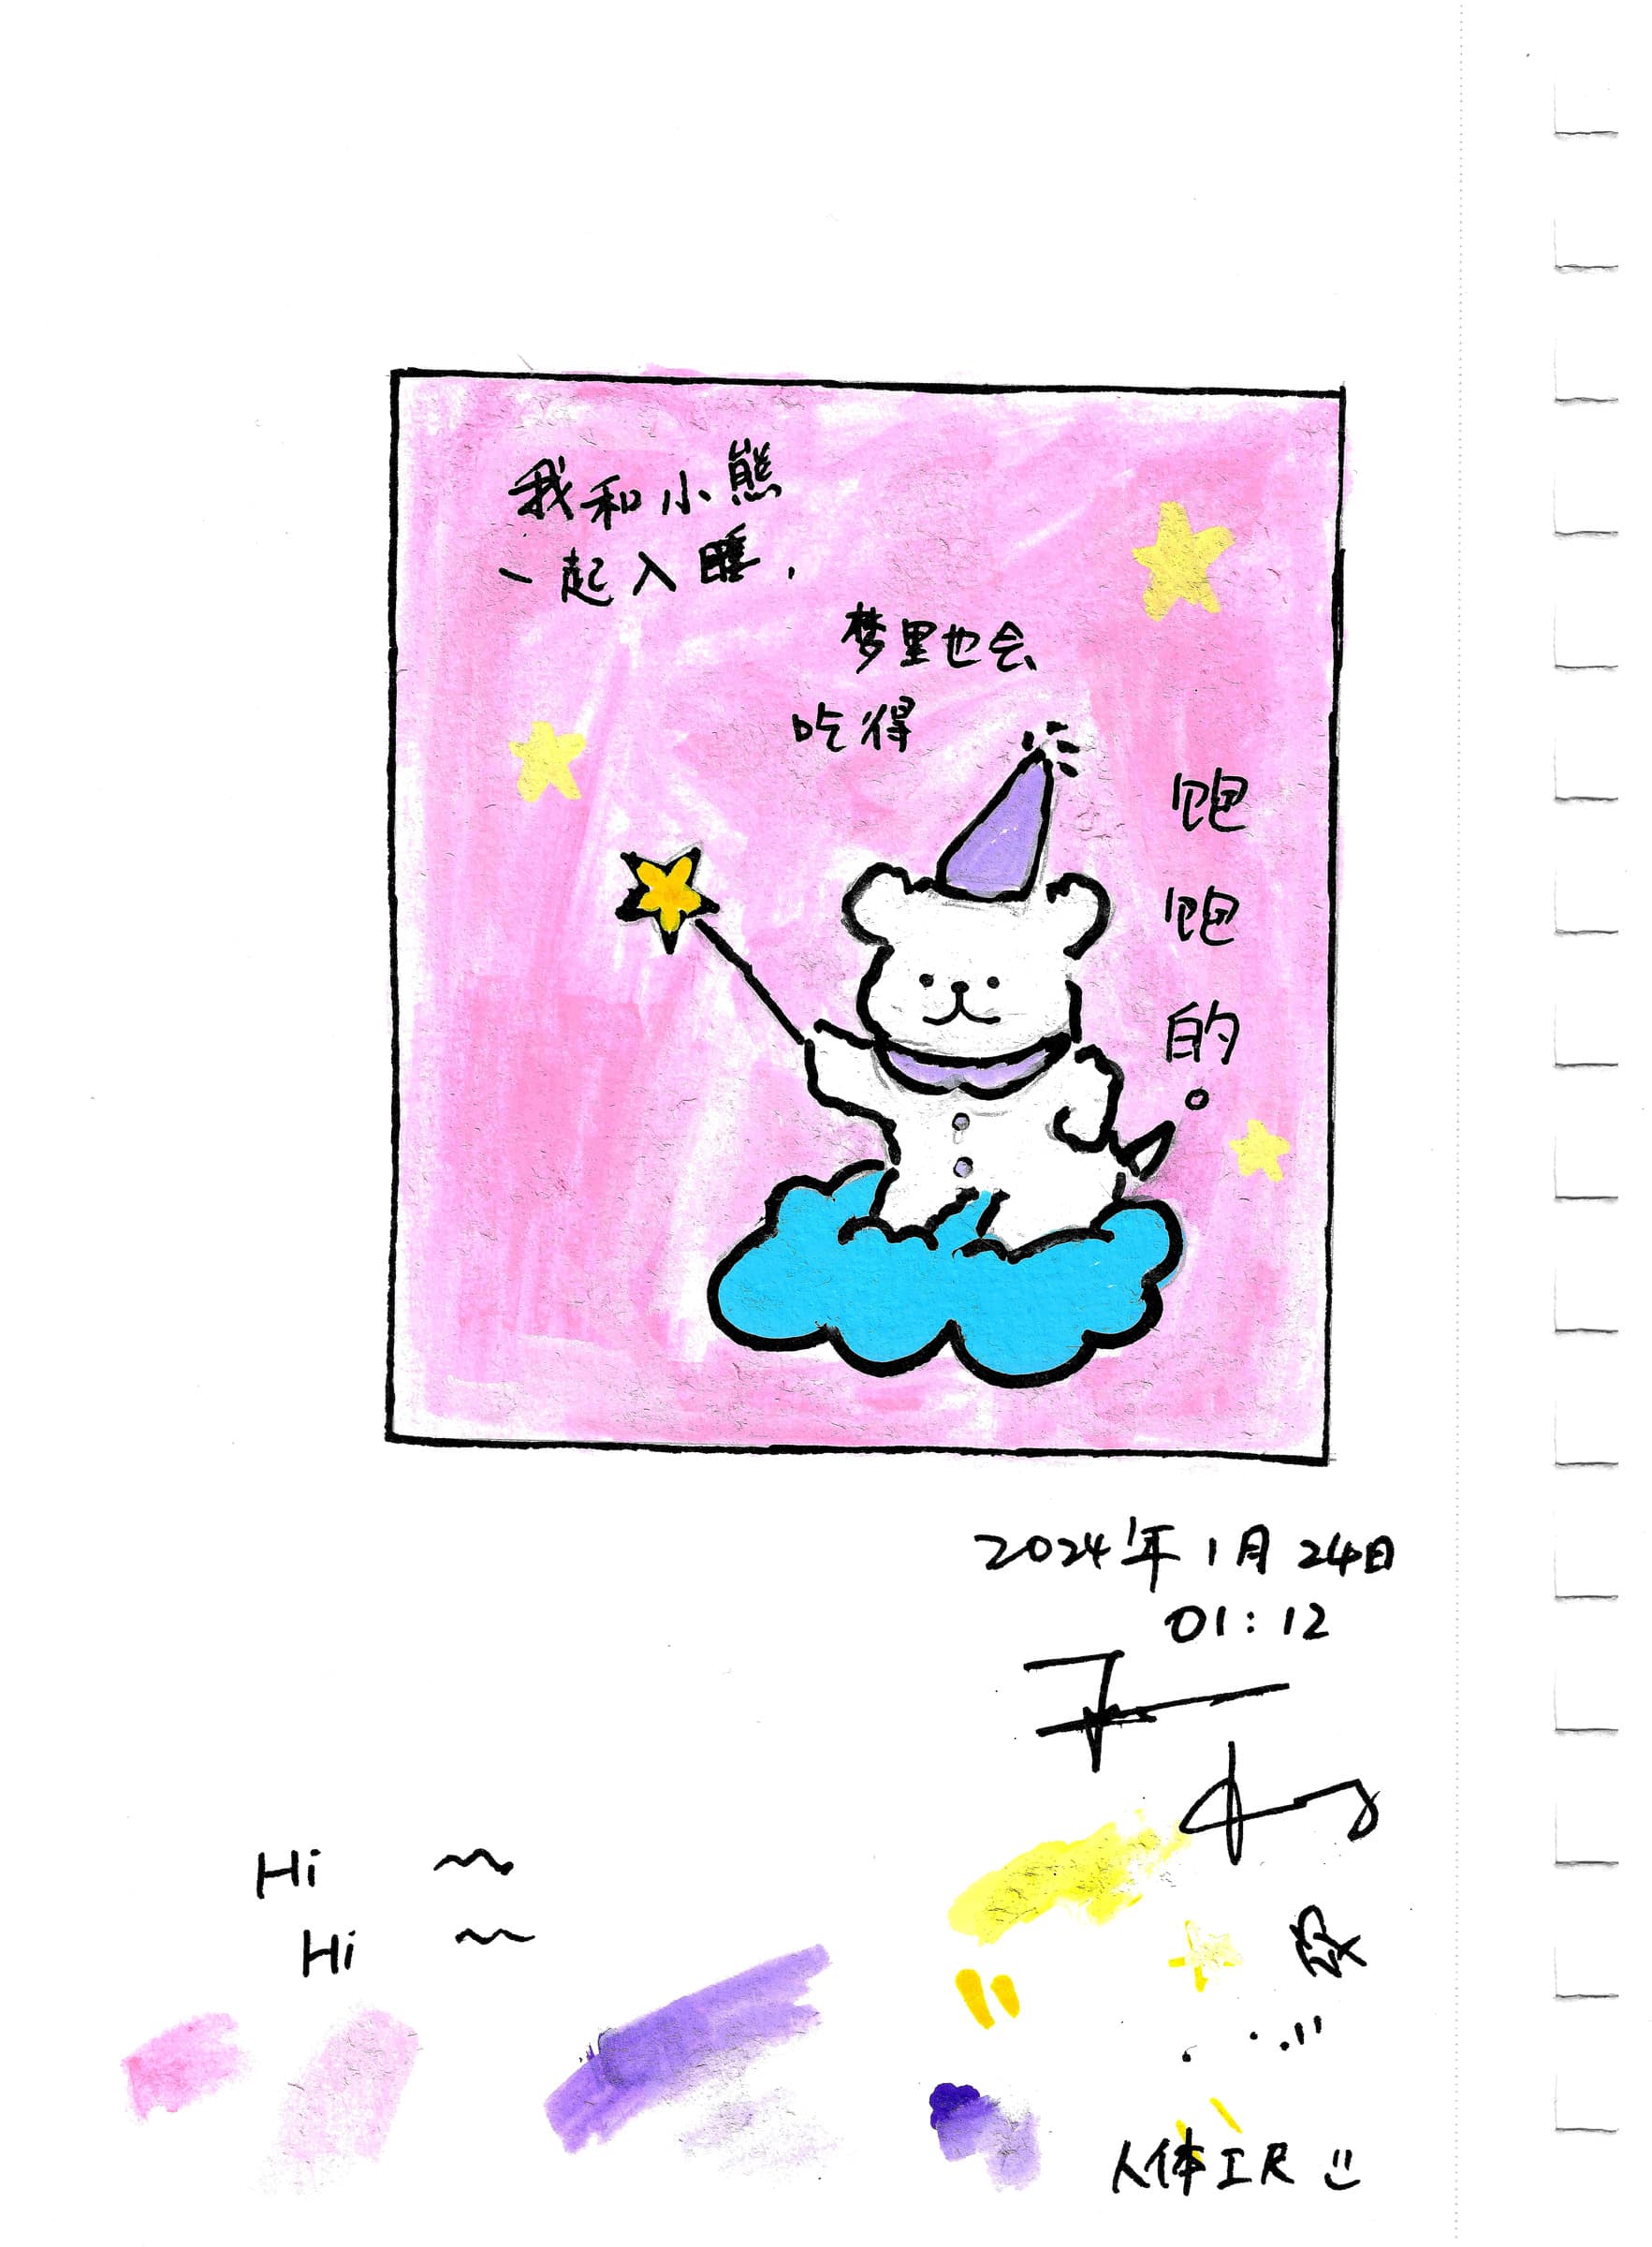 我和小熊
一起入睡，
梦里也会
吃得
饱
饱
的。
2024年1月24日
01:12
Hi ~~
Hi ~~
人体工尺